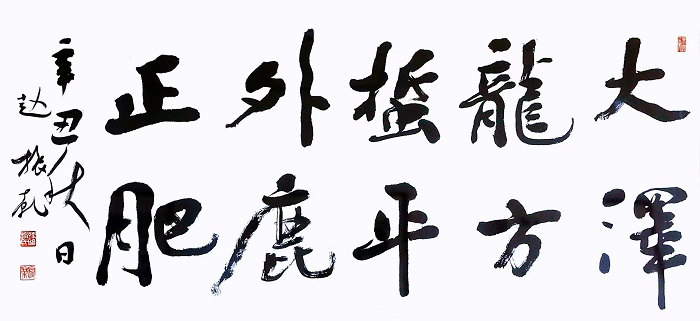 大澤
龍方
蜇平
外鹿
正肥
辛丑秋日
赵振